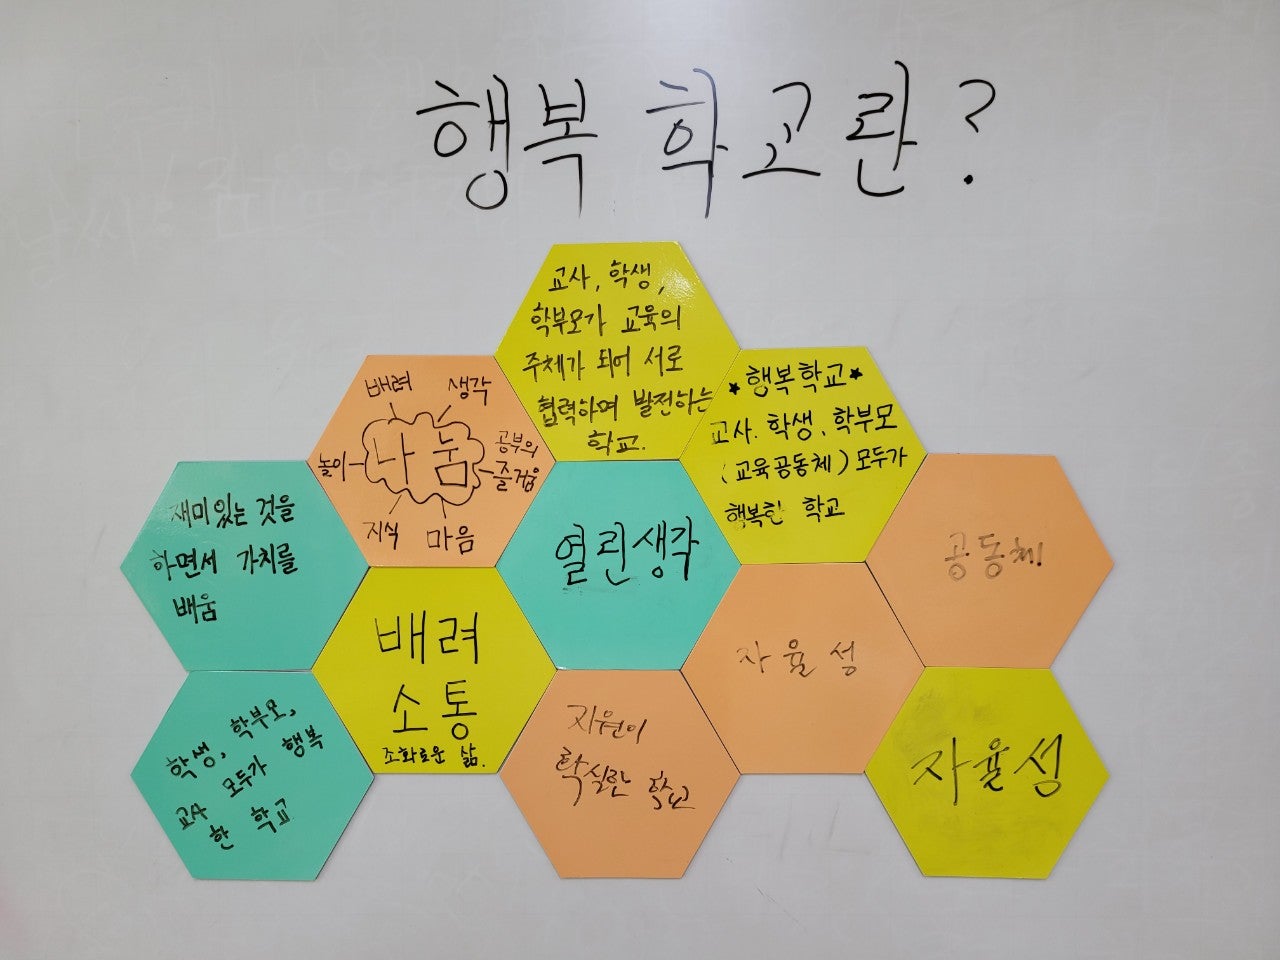 행복 학교란?
교사, 학생,
학부모가 교육의
주체가 되어 서로
협력하며 발전하는
학교.
배려 생각
놀이 나눔 공부의
즐거움
지식 마음
★행복학교★
교사. 학생. 학부모
(교육공동체) 모두가
행복한 학교
재미있는 것을
하면서 가치를
배움
열린생각
공동체!
배려
소통
조화로운 삶.
자율성
학생, 학부모,
교사 모두가 행복
한 학교
지원이
탁실한 학교
자율성